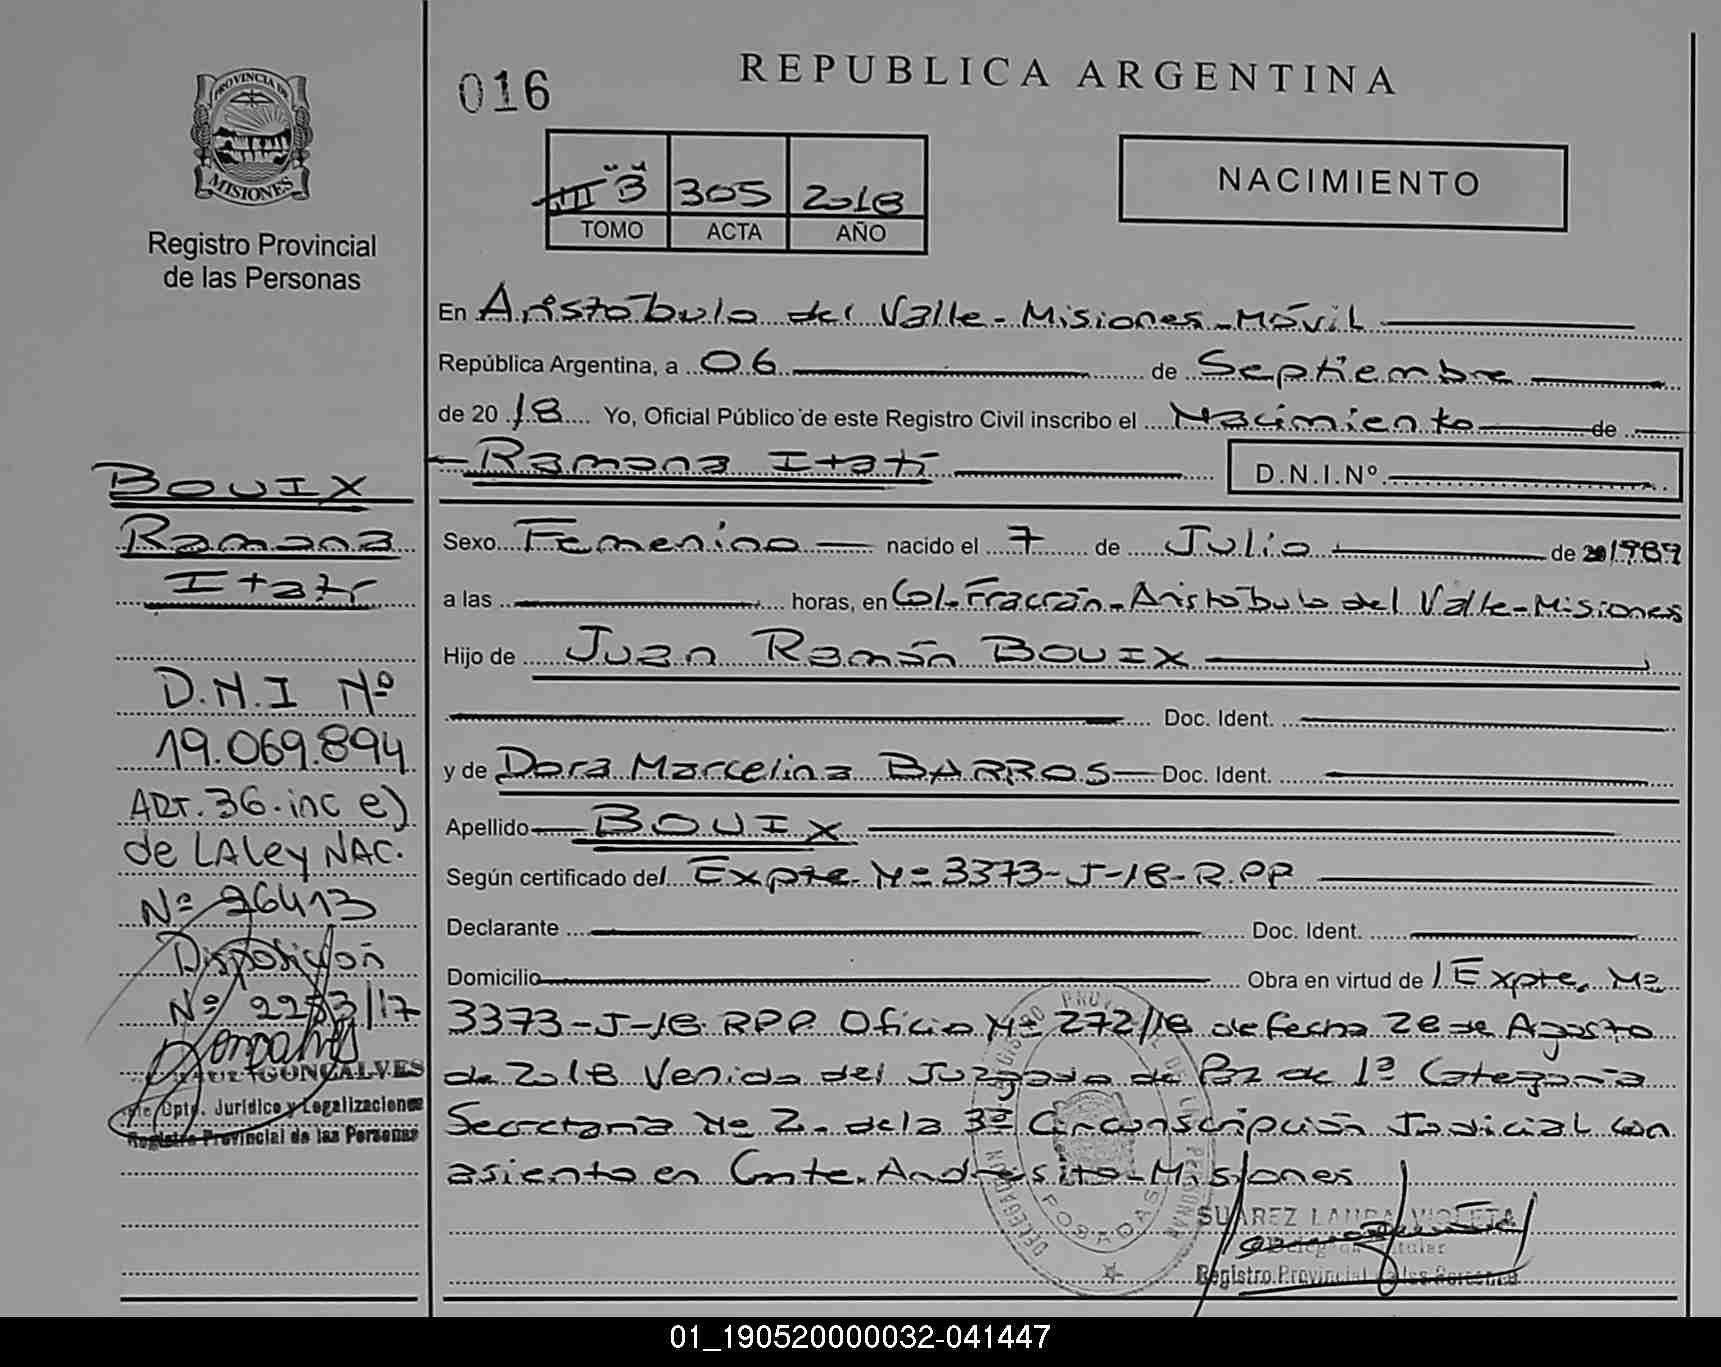 PROVINCIA DE
MISIONES
Registro Provincial
de las Personas
BOUIX
Ramona
Itatí
D.N.I Nº
19.069.894
ART. 36. inc e)
de LA Ley NAC.
Nº 26413
Disposición
Nº 2253/17
GONCALVES
Dpto. Jurídico y Legalizaciones
Registro Provincial de las Personas
016
REPUBLICA ARGENTINA
"B" 305 2018
TOMO ACTA AÑO
NACIMIENTO
En Aristóbulo del Valle - Misiones - Móvil
República Argentina, a 06 de Septiembre
de 2018 Yo, Oficial Público de este Registro Civil inscribo el Nacimiento de
Ramona Itatí D.N.I.Nº
Sexo Femenino nacido el 7 de Julio de 1989
a las horas, en Col. Fracrán - Aristóbulo del Valle - Misiones
Hijo de Juan Ramón BOUIX
Doc. Ident.
y de Dora Marcelina BARROS Doc. Ident.
Apellido BOUIX
Según certificado del Expte Nº 3373-J-18-R.PP
Declarante Doc. Ident.
Domicilio Obra en virtud de / Expte. Nº
3373-J-18- RPP. Oficio Nº 272/18 de fecha 28 de Agosto
de 2018 Venido del Juzgado de Paz de 1ª Categoría
Secretaría Nº 2. de la 3ª Circunscripción Judicial con
asiento en Cmte. Andresito - Misiones
POSADAS
SUAREZ LAURA VIOLETA
Delegada Titular
Registro Provincial de las Personas
01_190520000032-041447